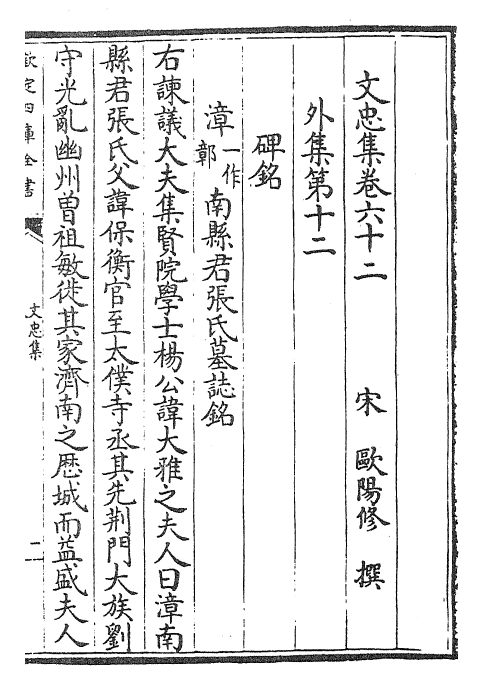 文忠集卷六十二　宋　歐陽修　撰
外集第十二
碑銘
漳一作彰南縣君張氏墓誌銘
右諫議大夫集賢院學士楊公諱大雅之夫人曰漳南
縣君張氏父諱保衡官至太僕寺丞其先荆門大族劉
守光亂幽州曽祖敏徙其家濟南之歴城而益盛夫人
欽定四庫全書
文忠集
二